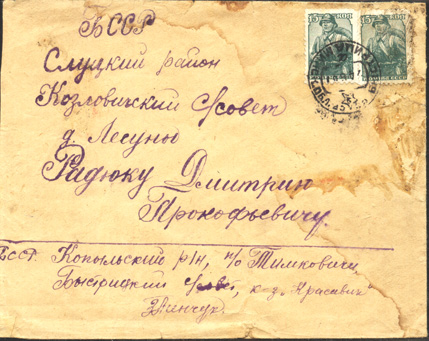 БССР
Слуцкий район
Козловичский с/совет
д. Лесуны
Радюку Дмитрию
Прокофьевичу.
БССР. Копыльский р/н, п/о Тимковичи,
Быстрицкий с/совет, к-з "Красавик"
15 КОП 15 КОП